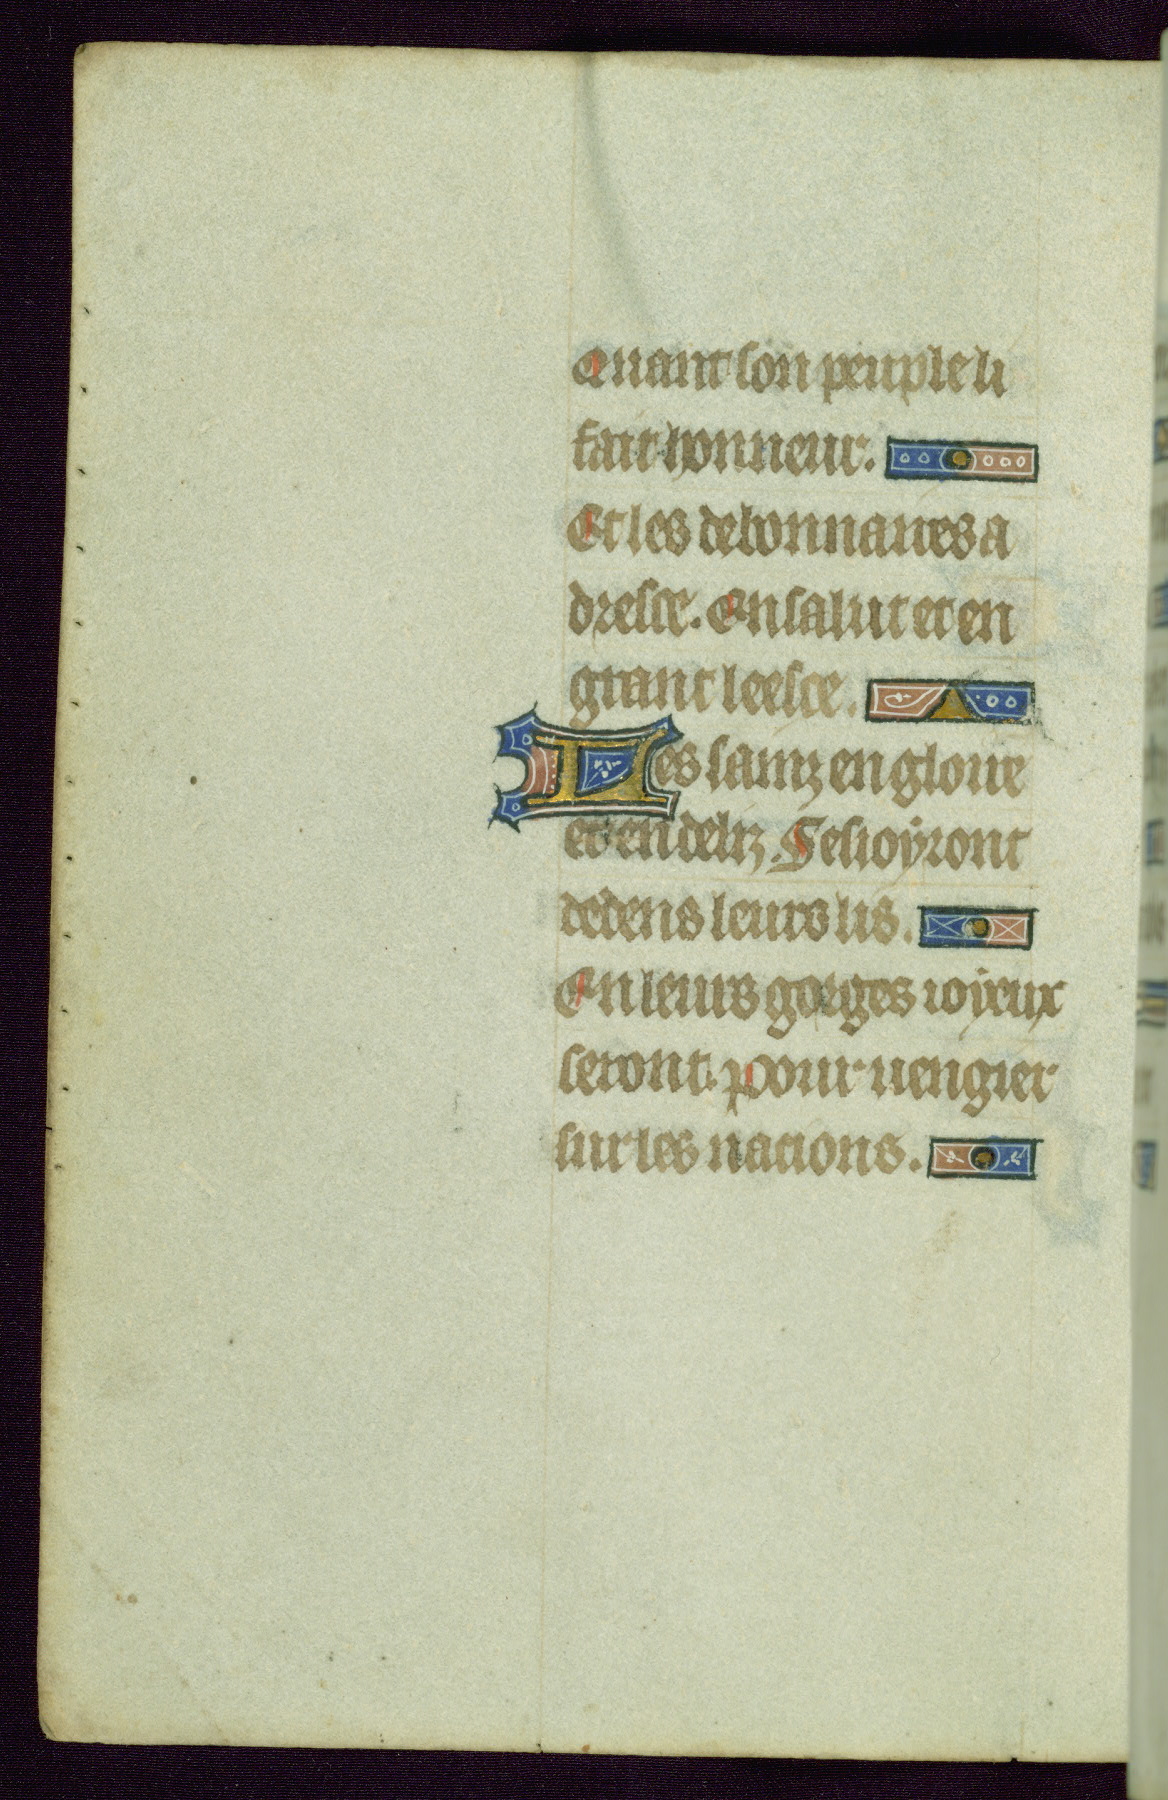 Quant son peuple li
fait honneur.
Et les debonnaires a
dresce. En salut et en
grant leesce.
Les sainz en gloire
et en deliz. Sesioÿront
dedens leurs lis.
En leurs gorges ioÿeux
seront. Pour uengier
sur les nacions.